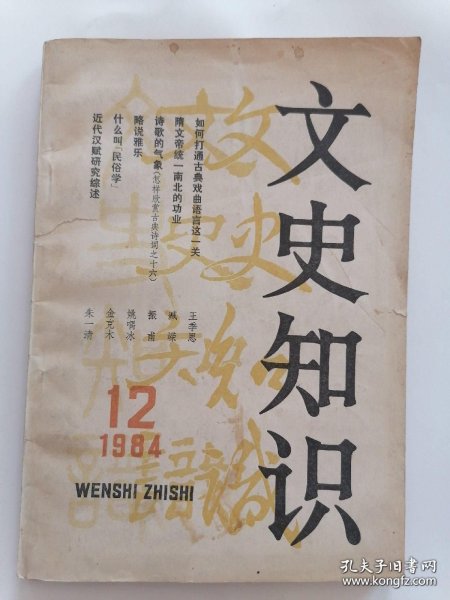 文史知识
如何打通古典戏曲语言这一关
王季思
隋文帝统一南北的功业
臧嵘
诗歌的气象(怎样欣赏古典诗词之十六)
振甫
略说雅乐
姚喁冰
什么叫「民俗学」
金克木
近代汉赋研究综述
朱一清
12
1984
WENSHI ZHISHI
孔夫子旧书网
www.kongfz.com